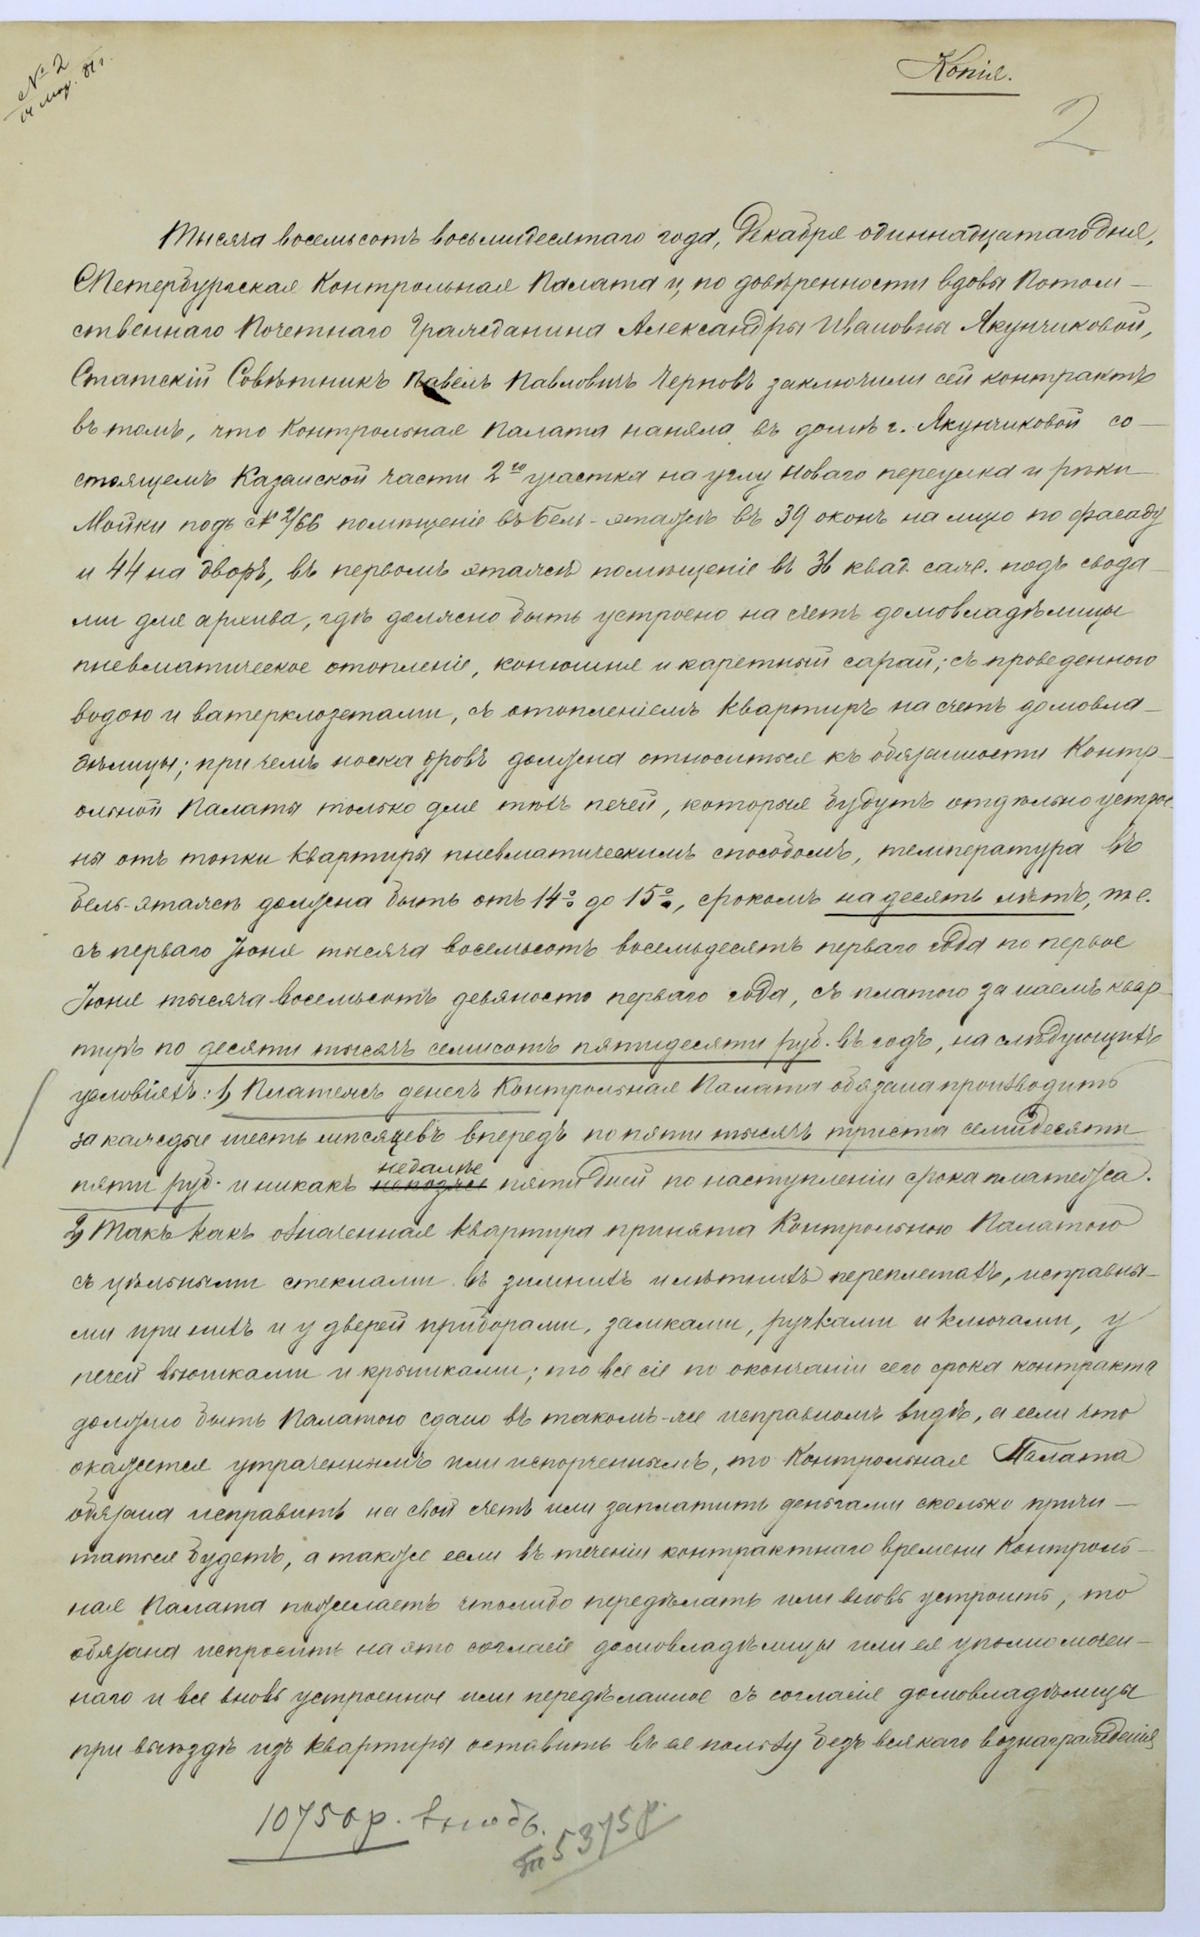 № 2
Копія.
2
Тысяча восемьсотъ восьмидесятаго года, Декабря одиннадцатаго дня,
СПетербургская Контрольная Палата и, по довѣренности вдовы Потом-
ственнаго Почетнаго Гражданина Александры Ивановны Якунчиковой,
Статскій Совѣтникъ Павелъ Павловичъ Черновъ заключили сей контрактъ
въ томъ, что Контрольная Палата наняла въ домѣ г. Якунчиковой со-
стоящемъ Казанской части 2го участка на углу Новаго переулка и рѣки
Мойки подъ № 2/66 помѣщеніе въ Бель-этажѣ въ 39 оконъ на лицо по фасаду
и 44 на дворъ, въ первомъ этажѣ помѣщеніе въ 36 квад. саж. подъ свода-
ми для архива, гдѣ должно быть устроено на счетъ домовладѣлицы
пневматическое отопленіе, конюшня и каретный сарай; съ проведенною
водою и ватерклозетами, съ отопленіемъ квартиръ на счетъ домовла-
дѣлицы; при чемъ носка дровъ должна относиться къ обязанности Контр-
ольной Палаты только для тѣхъ печей, которыя будутъ отдѣльно устрое-
ны отъ топки квартиры пневматическимъ способомъ, температура въ
бель-этажѣ должна быть отъ 14° до 15°, срокомъ на десять лѣтъ, т.е.
съ перваго Іюня тысяча восемьсотъ восемьдесятъ перваго года по первое
Іюня тысяча восемьсотъ девяносто перваго года, съ платою за наемъ квар-
тиръ по десяти тысячъ семисотъ пятидесяти руб. въ годъ, на слѣдующихъ
условіяхъ: 1) Платежъ денегъ Контрольная Палата обязана производить
за каждые шесть мѣсяцевъ впередъ по пяти тысячъ триста семидесяти
недалѣе
пяти руб. и никакъ непозже пяти дней по наступленіи срока платежа.
2) Такъ какъ означенная квартира принята Контрольною Палатою
съ цѣльными стеклами въ зимнихъ и лѣтнихъ переплетахъ, исправны-
ми при нихъ и у дверей приборами, замками, ручками и ключами, у
печей вьюшками и крышками; то все сіе по окончаніи сего срока контракта
должно быть Палатою сдано въ такомъ-же исправномъ видѣ, а если что
окажется утраченнымъ или испорченнымъ, то Контрольная Палата
обязана исправить на свой счетъ или заплатить деньгами сколько причи-
таться будетъ, а также если въ теченіи контрактнаго времени Контроль-
ная Палата пожелаетъ чтолибо передѣлать или вновь устроить, то
обязана испросить на это согласіе домовладѣлицы или ея уполномочен-
наго и все вновь устроенное или передѣланное съ согласія домовладѣлицы
при выѣздѣ изъ квартиры оставить въ ея пользу безъ всякаго вознагражденія
10750 р. въ годъ.
5375 р.